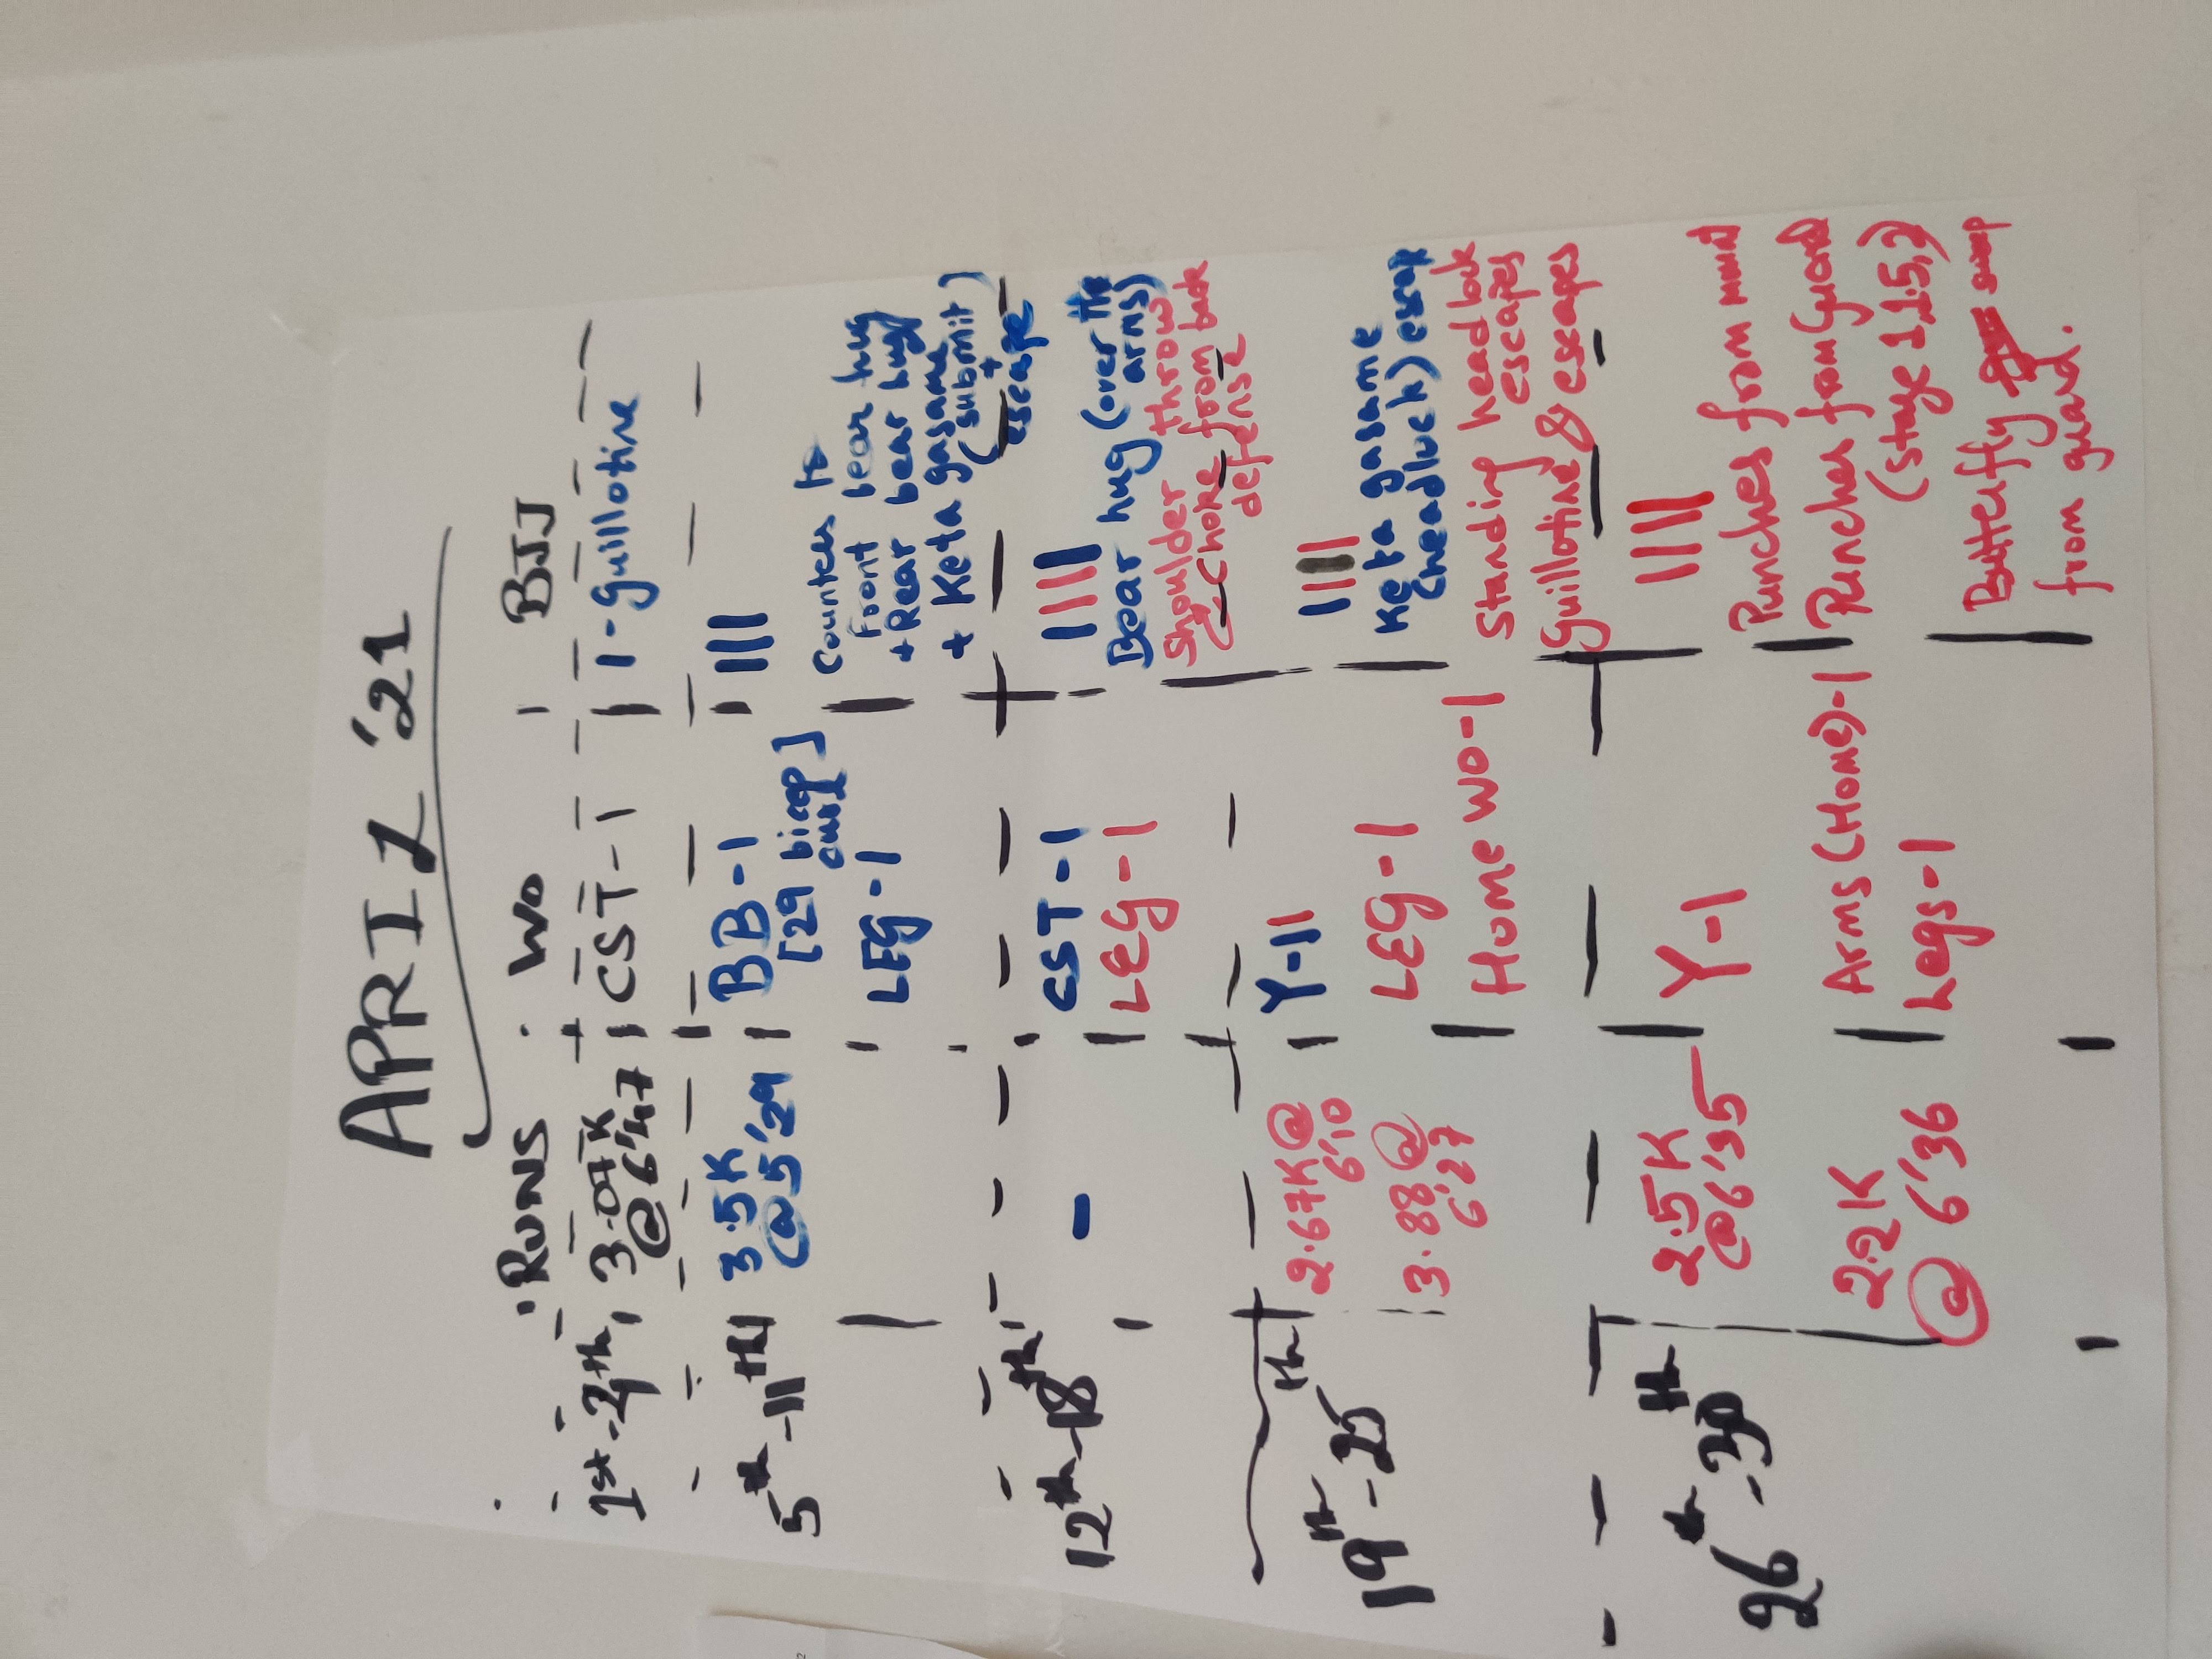 APRIL '21
RUNS WO BJJ
1st-4th 3.07K CST-1 1-Guillotine
@6'47
5th-11th 3.5K BB-1 |||
@5'29 [29 bicep
curl]
LEG-1 Counters to
Front bear hug
+Rear bear hug
+ Keta gasame
(submit)
+
escape
12th-18th - CST-1 ||||
LEG-1 Bear hug (over the
arms)
Shoulder throw
& Choke from back
defense
19th-25th 2.67K@ Y-11 ||||
6'10
3.88@ LEG-1 Keta gasame
6'27 (headluck) escap
Home WO-1 Standing head lock
escapes
Guillotine & escapes
26th-30th 2.5K Y-1 ||||
@6'35
Punches from mount
2.2K Arms (Home)-1 Punches from Guard
@ 6'36 Legs-1 (stage 1,1.5,2)
Butterfly sweep
from guard.